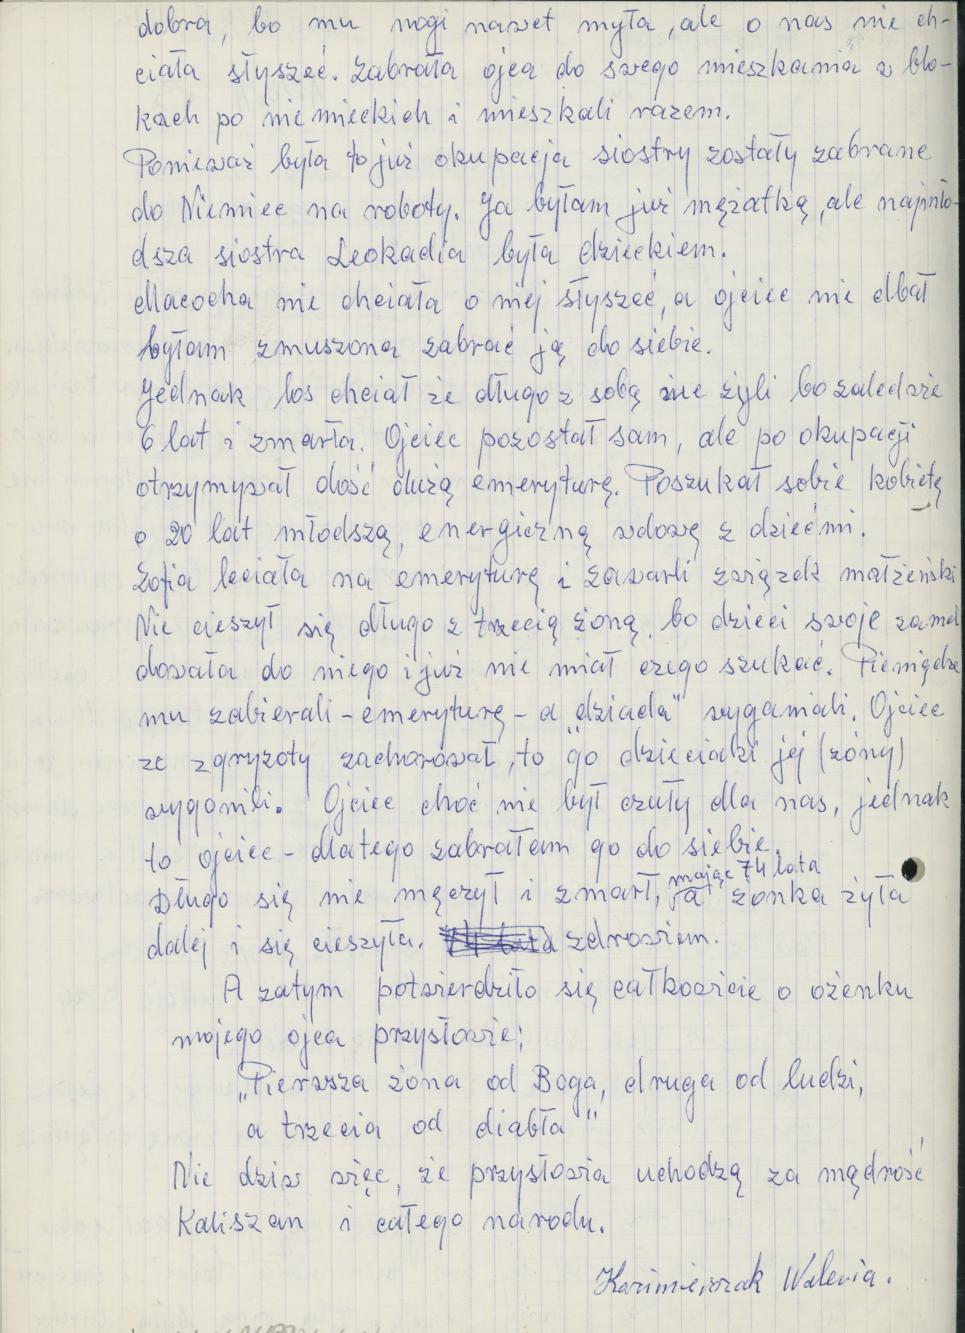 dobra, bo mu nogi nawet myła, ale o nas nie ch-
ciała słyszeć. Zabrała ojca do swego mieszkania w blo-
kach po niemieckich i mieszkali razem.
Ponieważ była to już okupacja siostry zostały zabrane
do Niemiec na roboty. Ja byłam już mężatką, ale najmło-
dsza siostra Leokadia była dzieckiem.
Macocha nie chciała o niej słyszeć, a ojciec nie dbał
byłam zmuszona zabrać ją do siebie.
Jednak los chciał że długo z sobą nie żyli bo zaledwie
6 lat i zmarła. Ojciec pozostał sam, ale po okupacji
otrzymywał dość dużą emeryturę. Poszukał sobie kobietę
o 20 lat młodszą, energiczną wdowę z dziećmi.
Zofia leciała na emeryturę i zawarli związek małżeński
Nie cieszył się długo z trzecią żoną, bo dzieci swoje zamel
dowała do niego i już nie miał czego szukać. Pieniądze
mu zabierali - emeryturę - a "dziada" wyganiali. Ojciec
ze zgryzoty zachorował, to go dzieciaki jej (żony)
wygonili. Ojciec choć nie był czuły dla nas, jednak
to ojciec - dlatego zabrałam go do siebie.
Długo się nie męczył i zmarł, mając 74 lata a żonka żyła
dalej i się cieszyła. zdrowiem.
A zatym potwierdziło się całkowicie o ożenku
mojego ojca przysłowie;
„Pierwsza żona od Boga, druga od ludzi,
a trzecia od diabła"
Nie dziw więc, że przysłowia uchodzą za mądrość
Kaliszan i całego narodu.
Kazimierczak Waleria.